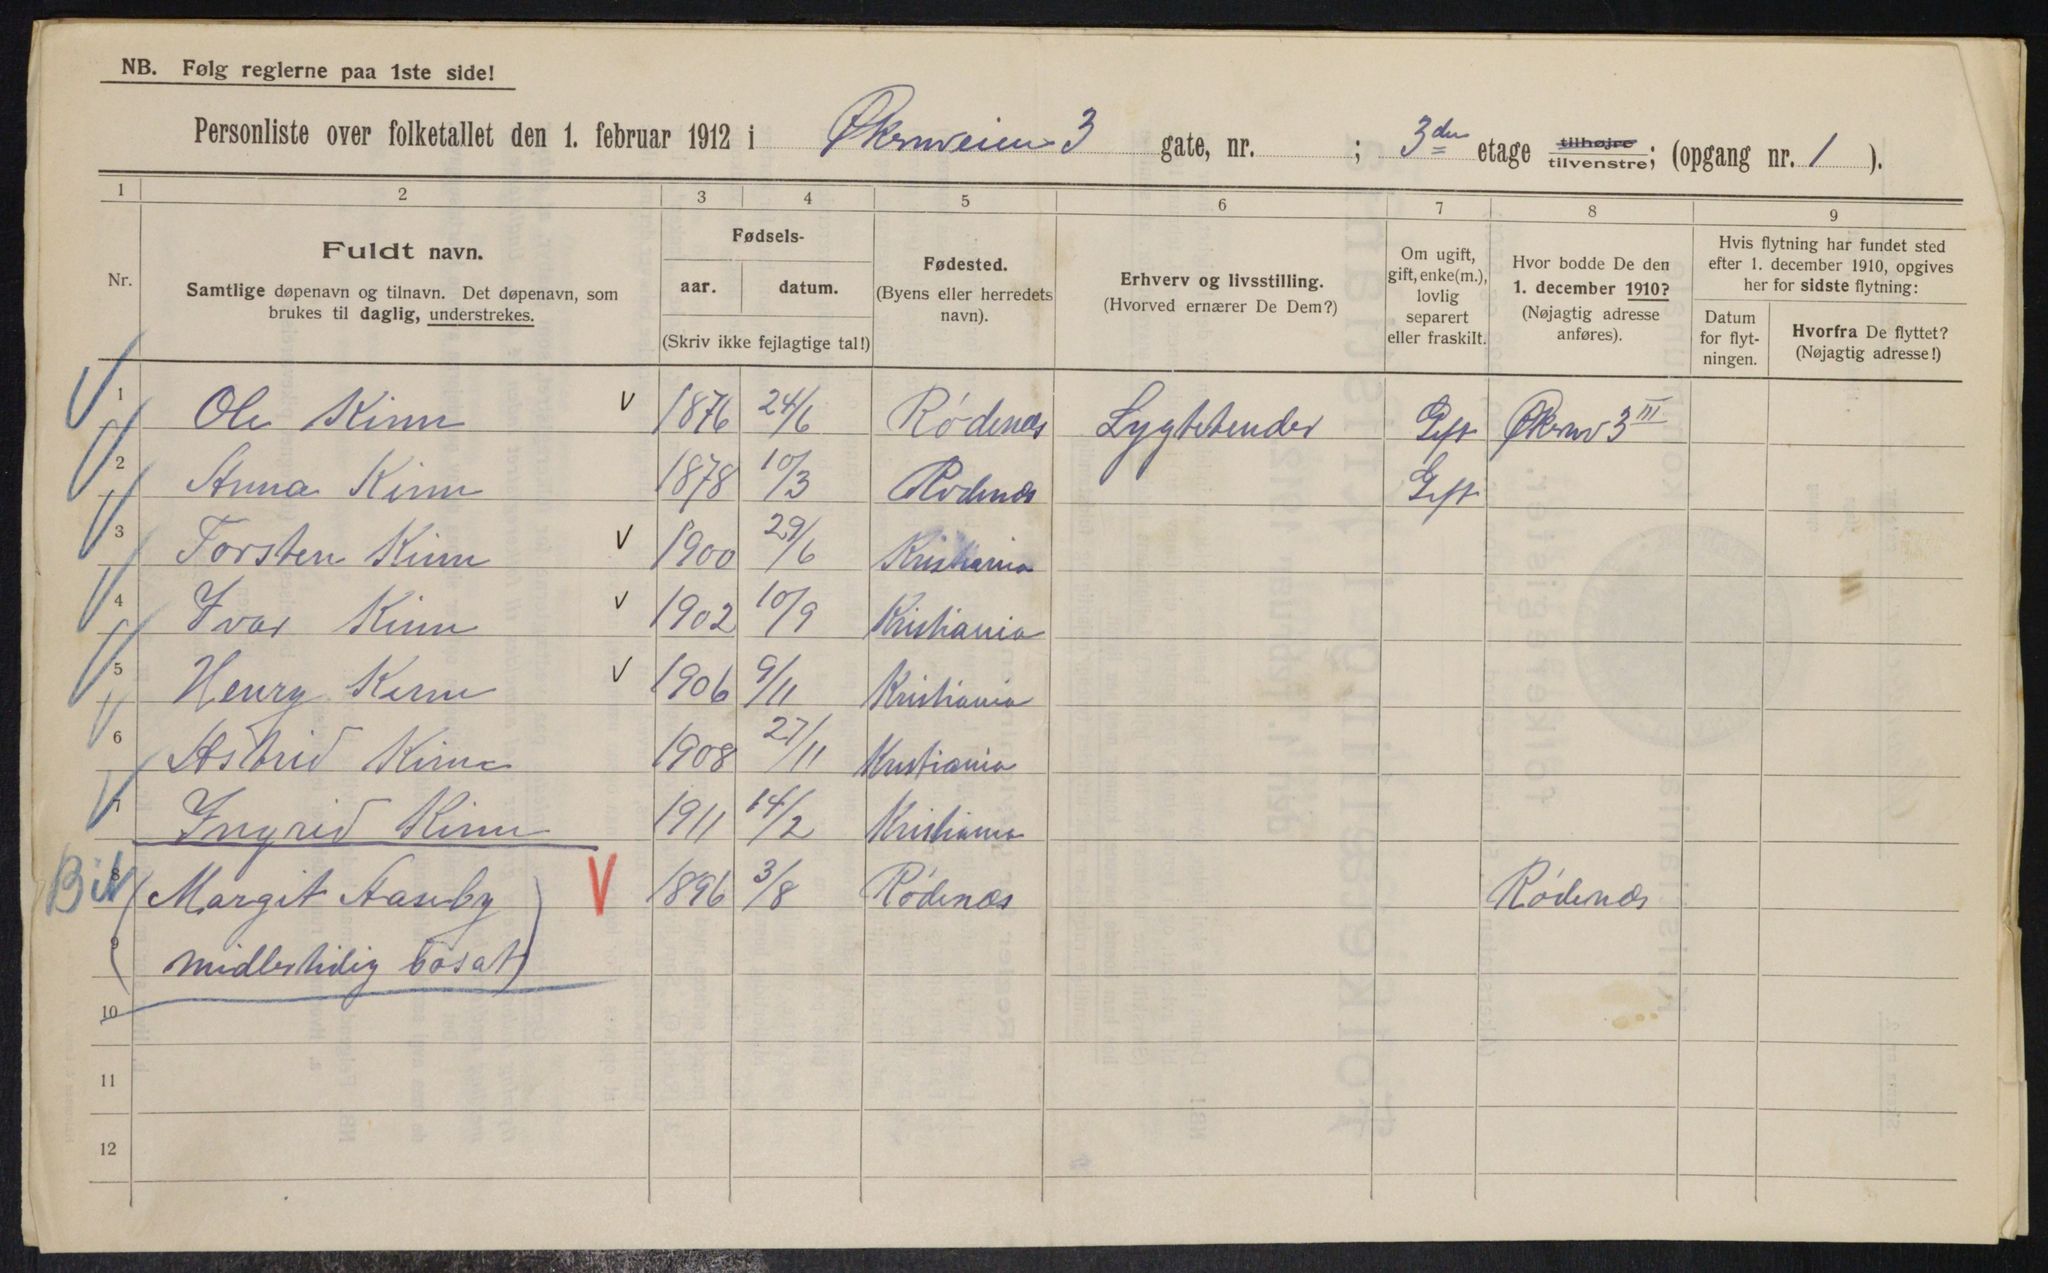 NB. Følg reglerne paa 1ste side!
Personliste over folketallet den 1. februar 1912 i Økernveien 3 gate, nr. ; 3die etage tilhøjre tilvenstre; (opgang nr. 1 ).
1 2 3 4 5 6 7 8 9
Nr.
Fuldt navn.
Samtlige døpenavn og tilnavn. Det døpenavn, som
brukes til daglig, understrekes.
Fødsels-
aar. datum.
(Skriv ikke fejlagtige tal!)
Fødested.
(Byens eller herredets
navn).
Erhverv og livsstilling.
(Hvorved ernærer De Dem?)
Om ugift,
gift, enke(m.),
lovlig
separert
eller fraskilt.
Hvor bodde De den
1. december 1910?
(Nøjagtig adresse
anføres).
Hvis flytning har fundet sted
efter 1. december 1910, opgives
her for sidste flytning:
Datum
for flyt-
ningen.
Hvorfra De flyttet?
(Nøjagtig adresse!)
1 Ole Kinn V 1876 24/6 Rødenæs Lygtetender Gift Økernv 3 III
2 Anna Kinn 1878 10/3 Rødenæs Gift
3 Torsten Kinn V 1900 29/6 Kristiania
4 Ivar Kinn V 1902 10/9 Kristiania
5 Henry Kinn V 1906 9/11 Kristiania
6 Astrid Kinn 1908 27/11 Kristiania
7 Ingrid Kinn 1911 14/2 Kristiania
8 (Margit Aaseby V 1896 3/8 Rødenæs Rødenæs
9 midlertidig bosat)
10
11
12